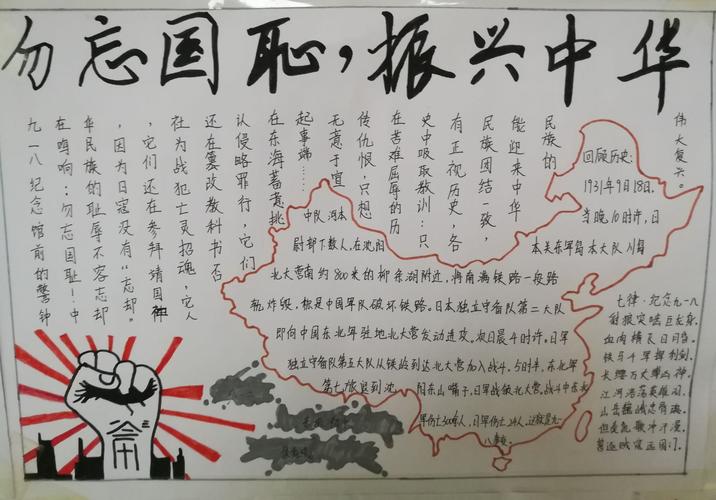 勿忘国耻,振兴中华
九一八纪念馆前的警钟
在鸣响:勿忘国耻!中
华民族的耻辱不容忘却
,因为日寇没有“忘却。
,它们还在参拜靖国神
社为战犯亡灵招魂,它人
还在篡改教科书否
认侵略罪行,它们
在东海蓄意挑
起事端……
无意于宣
传仇恨,只想
在苦难屈辱的历
史中吸取教训:只
有正视历史,各
民族团结一致,
能迎来中华
民族的
伟大复兴。
回顾历史:
1931年9月18日,
当晚10时许,日
本关东军岛本大队川岛
中队河本
尉部下数人,在沈阳
北大营南约800米的柳条湖附近,将南满铁路一段路
轨炸毁,称是中国军队破坏铁路。日本独立守备队第二大队
即向中国东北军驻地北大营发动进攻。次日晨4时许,日军
独立守备队第五大队从铁岭到达北大营加入战斗。5时半,东北军
第七旅退到沈阳东山嘴子,日军战领北大营。战斗中东北
军伤亡300余人,日军伤亡24人,这就是九
一八事变。
七律·纪念九一八
豺狼突啮巨龙身
血肉横飞日月昏。
铁马千军挥利剑
长缨万丈缚凶神。
江河浩荡英雄泪
山岳巍峨志骨魂。
歌冲汗漫
寇正国门。